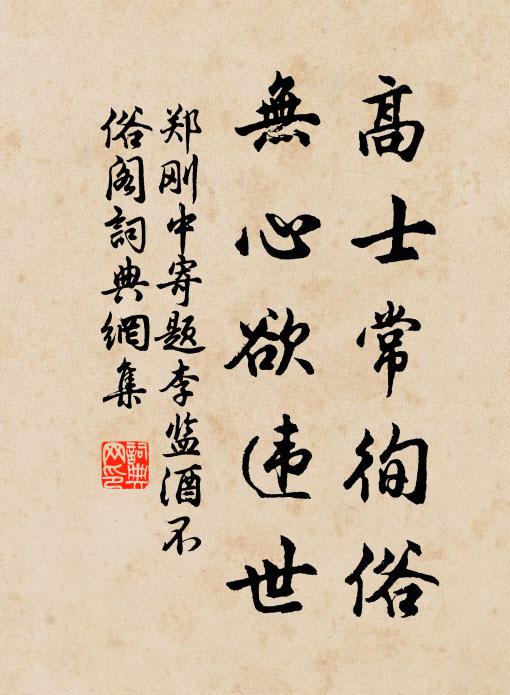 高士常徇俗
無心欲违世
郑刚中寄题李监酒不
俗阁詞典網集
詞典
网印